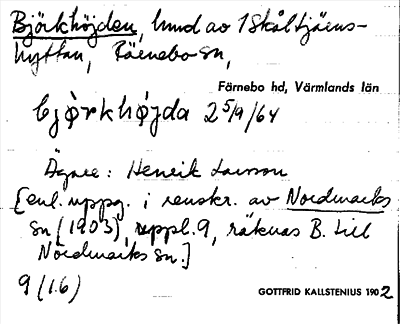 Björkhöjden, hmd av 1 Skåltjäens-
hyttan, Räenebo sn,
Färnebo hd, Värmlands län
bjo̩rkhøjda 25/9/64
Ägare: Henrik Larsson
[enl. uppg. i renskr. av Nordmarks
sn (1903), uppl. 9, räknas B. till
Nordmarks sn.]
9 (1.6)
GOTTFRID KALLSTENIUS 1902